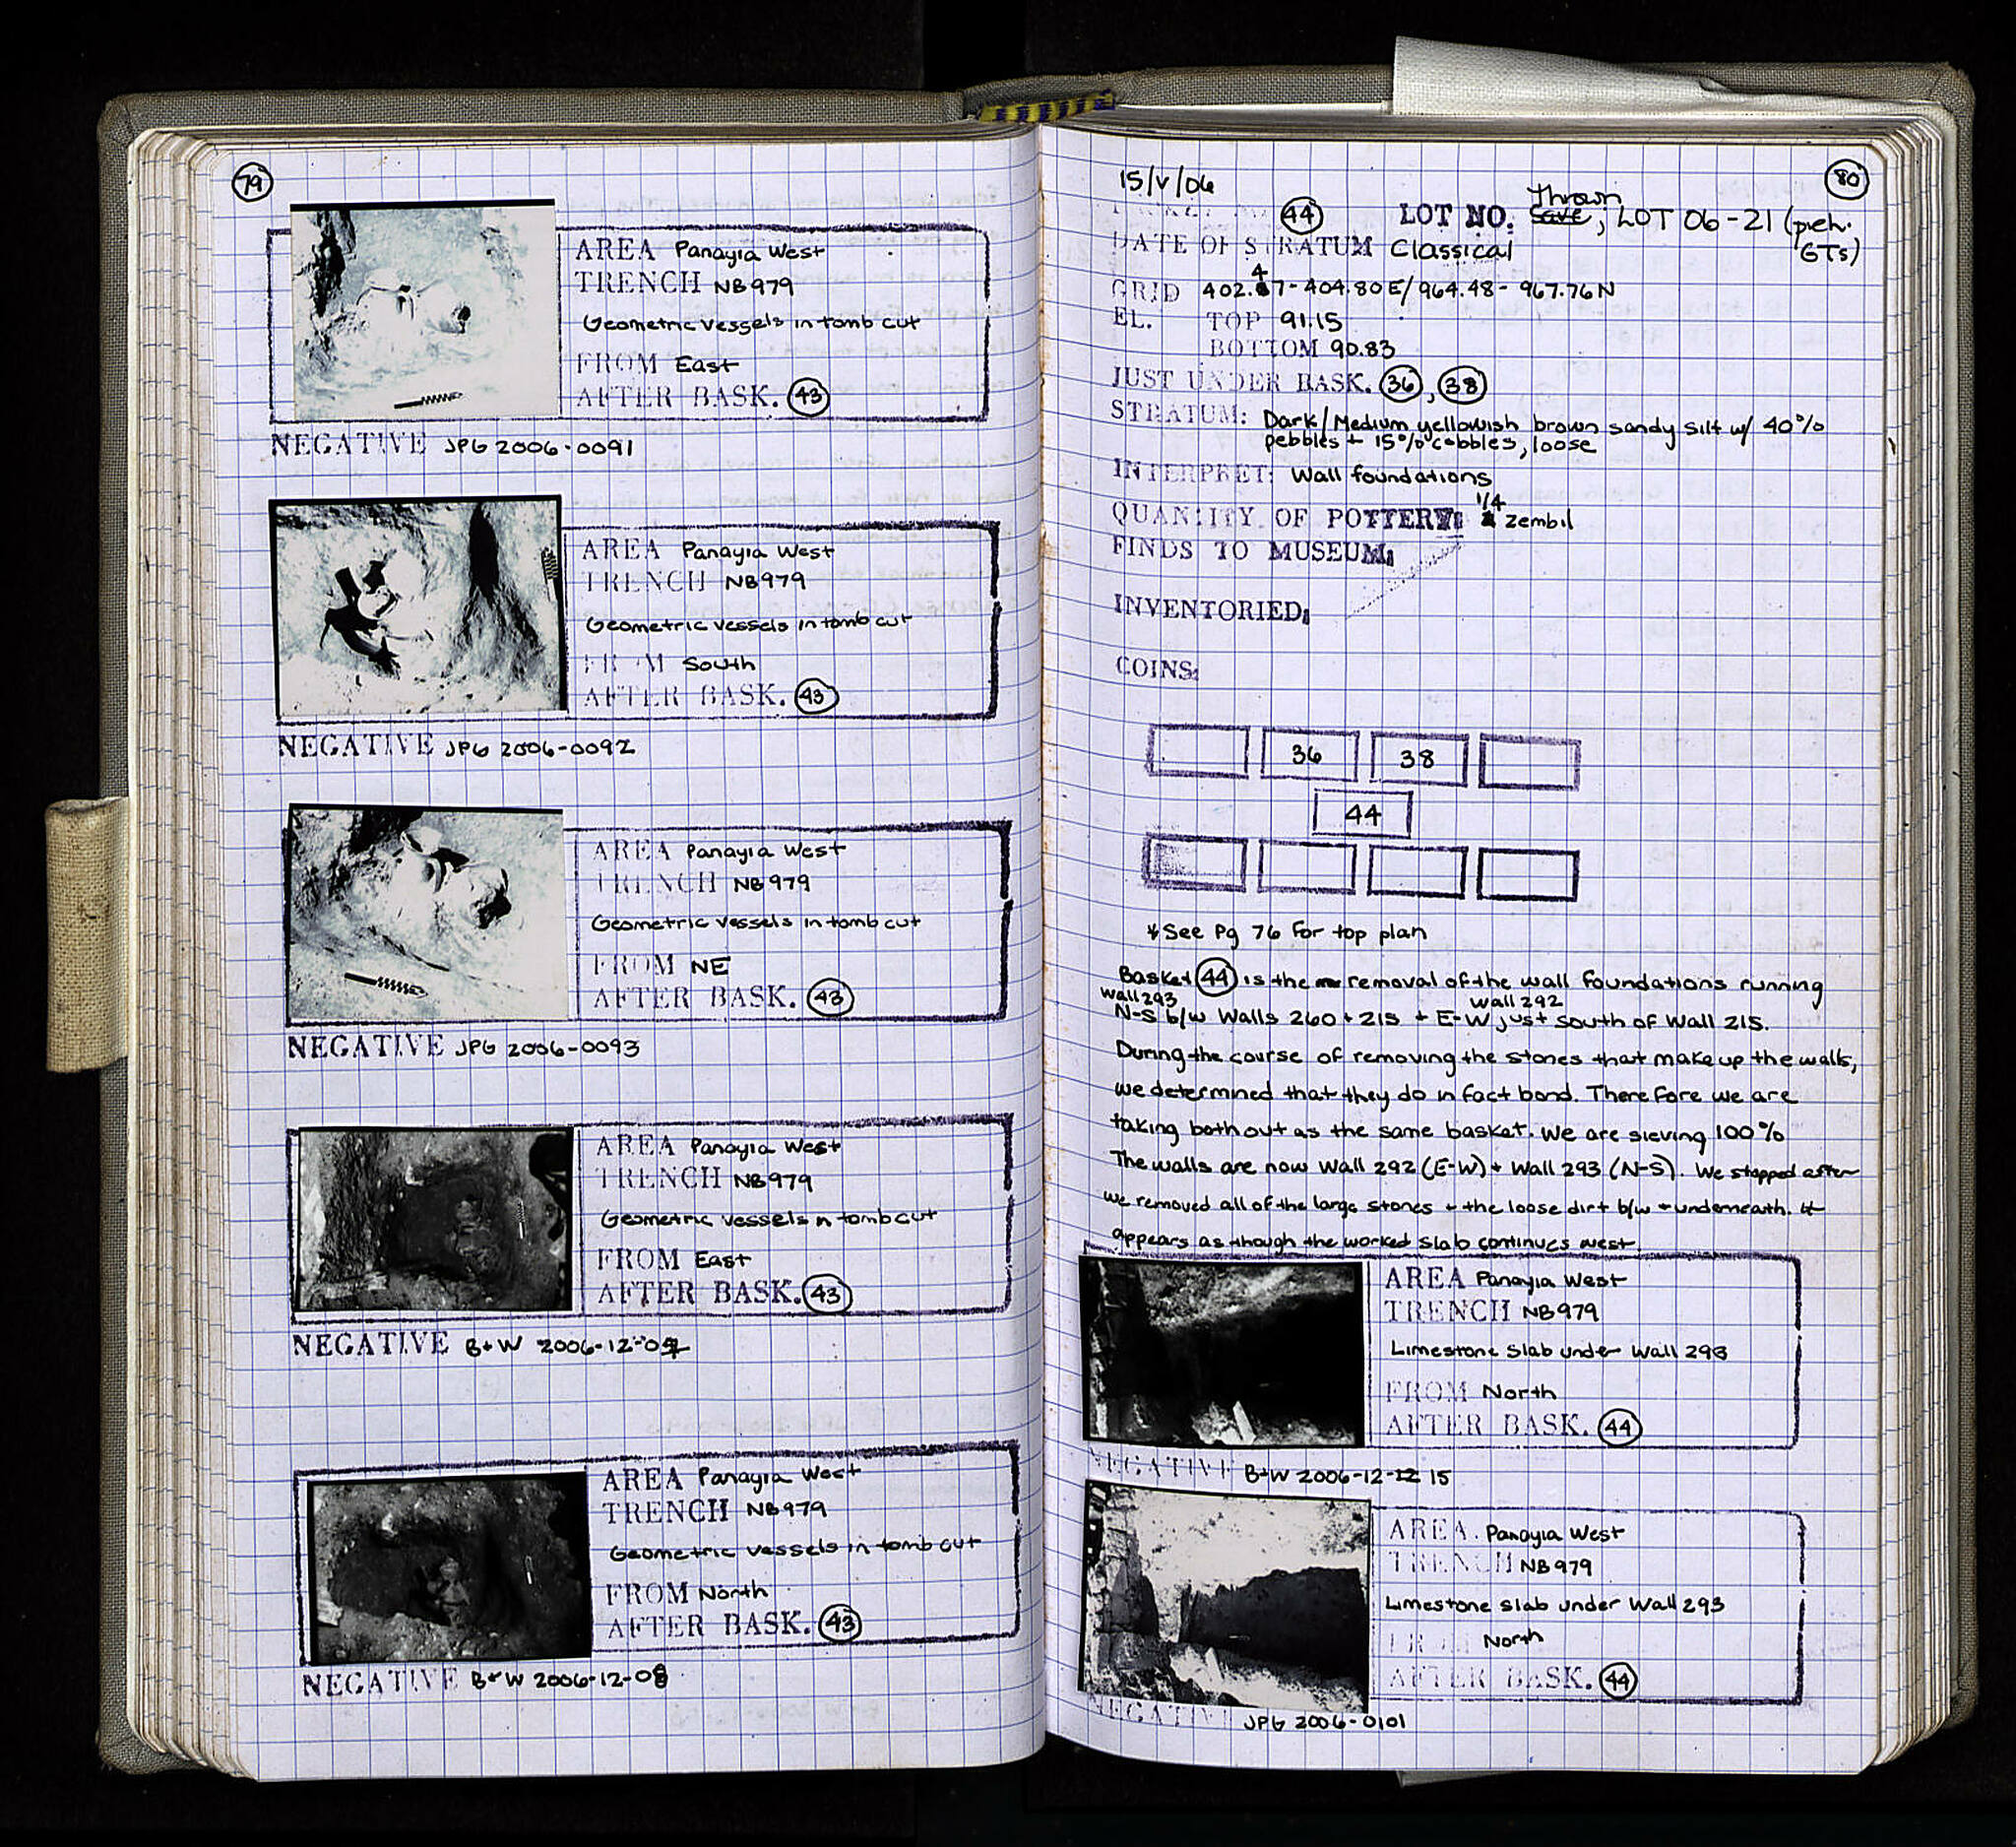 79
AREA Panayia West
TRENCH NB979
Geometric vessels in tomb cut
FROM East
AFTER BASK. 43
NEGATIVE JPG 2006-0091
AREA Panayia West
TRENCH NB979
Geometric vessels in tomb cut
FROM South
AFTER BASK. 43
NEGATIVE JPG 2006-0092
AREA Panayia West
TRENCH NB979
Geometric vessels in tomb cut
FROM NE
AFTER BASK. 43
NEGATIVE JPG 2006-0093
AREA Panayia West
TRENCH NB979
Geometric vessels in tomb cut
FROM East
AFTER BASK. 43
NEGATIVE B+W 2006-12-
AREA Panayia West
TRENCH NB979
Geometric vessels in tomb cut
FROM North
AFTER BASK. 43
NEGATIVE B+W 2006-12-08
80
15/V/06
44 LOT NO: Save Thrown, LOT 06-21 (preh. GTs)
DATE OF STRATUM Classical
GRID 402.47-404.80E/964.48-967.76N
EL. TOP 91.15
BOTTOM 90.83
JUST UNDER BASK. 36, 38
STRATUM: Dark/Medium yellowish brown sandy silt w/ 40%
pebbles + 15% cobbles, loose
INTERPRET: Wall foundations
QUANTITY OF POTTERY: 1/4 zembil
FINDS TO MUSEUM:
INVENTORIED:
COINS:
36 38
44
*See Pg 76 for top plan
Basket 44 is the removal of the wall foundations running
wall 293 wall 292
N-S b/w Walls 260 + 215 + E-W just south of Wall 215.
During the course of removing the stones that make up the walls,
we determined that they do in fact bond. Therefore we are
taking both out as the same basket. We are sieving 100%
The walls are now Wall 292 (E-W) + Wall 293 (N-S). We stopped after
we removed all of the large stones + the loose dirt b/w + underneath. It
appears as though the worked slab continues west
AREA Panayia West
TRENCH NB979
Limestone slab under Wall 293
FROM North
AFTER BASK. 44
NEGATIVE B+W 2006-12-12 15
AREA Panayia West
TRENCH NB979
Limestone slab under Wall 293
FROM North
AFTER BASK. 44
NEGATIVE JPG 2006-0101